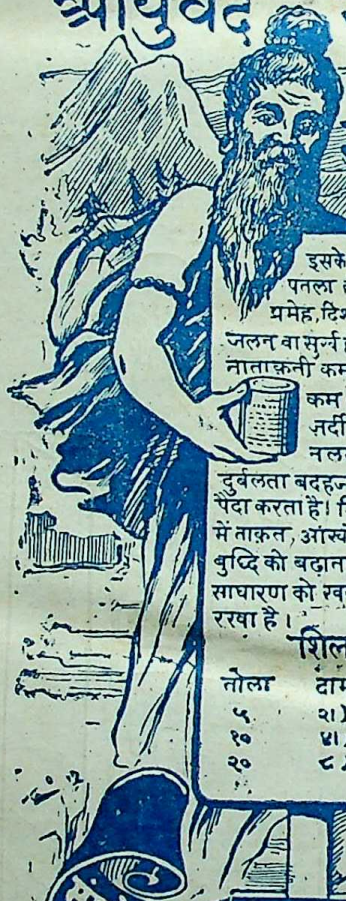 आयुर्वेद
इसके
पतला
प्रमेह, दि
जलन वा सुर्ख
नाताक़ती कम
कम
ज़र्दी
नल
दुर्बलता बदहज
पैदा करता है।
में ताक़त, आंख
बुद्धि को बढ़ाता
साधारण को
ररषा है।
शिल
तोला दाम
५ २।)
१० ४।)
२० ८)